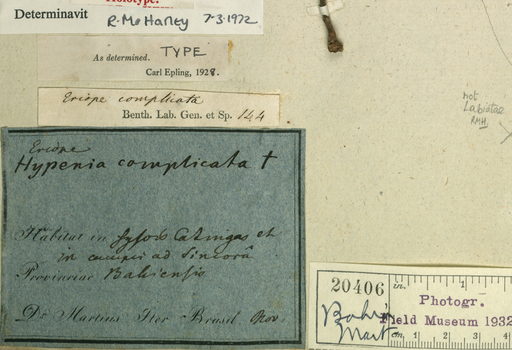 Holotype.
Determinavit R. M. Harley 7-3-1972
TYPE
As determined.
Carl Epling, 1928.
Eriope complicata
Benth. Lab. Gen. et Sp. 144
Eriope
Hypenia complicata †
Habitat in Catingas et
in campis ad Sincorá
Provinciae Bahiensis
Dr Martius Iter Brasil. Nov.
not
Labiatae
RMH
20406
Bahia
Mart
in. 1 2
Photogr.
Field Museum 1932
1 2 3 4